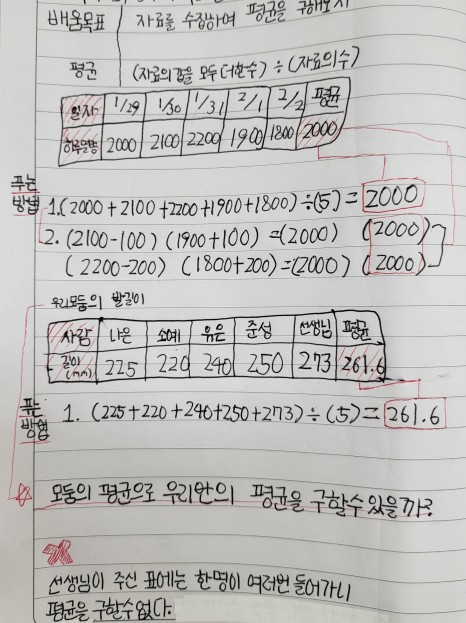 배움목표 자료를 수집하여 평균을 구해보자
평균 (자료의 값을 모두 더한 수) ÷ (자료의 수)
일자 1/29 1/30 1/31 2/1 2/2 평균
2000 2100 2200 1900 1800 2000
푸는 방법 1. (2000 + 2100 + 2200 + 1900 + 1800) ÷ (5) = 2000
2. (2100-100) (1900+100) = (2000) (2000)
(2200-200) (1800+200) = (2000) (2000)
우리모둠의 발길이
사람 나은 소예 유은 준성 선생님 평균
길이(mm) 225 220 240 250 273 261.6
푸는 방법 1. (225 + 220 + 240 + 250 + 273) ÷ (5) = 261.6
☆ 모둠의 평균으로 우리반의 평균을 구할수 있을까?
선생님이 주신 표에는 한명이 여러번 들어가니
평균을 구할수 없다.